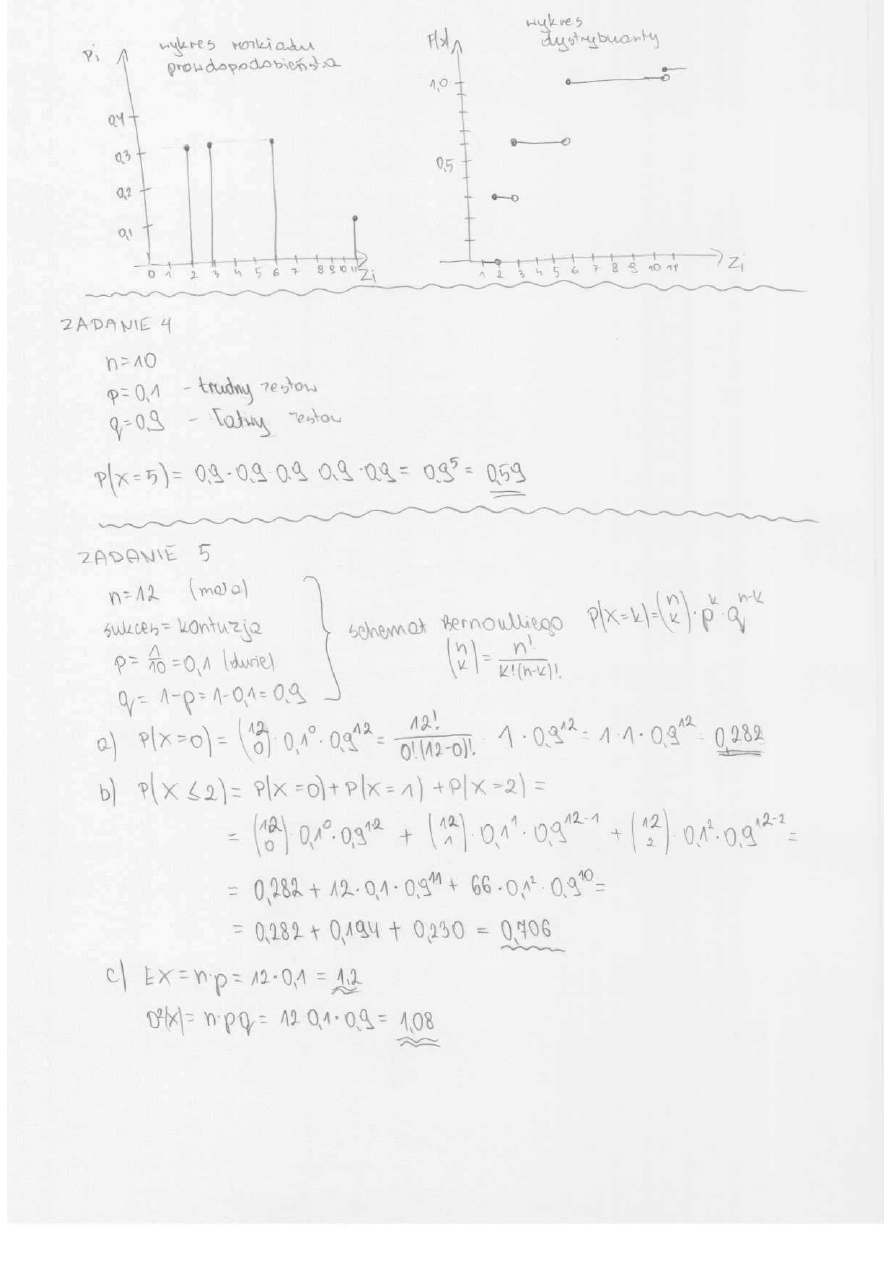 wykres rozkładu
prawdopodobieństwa
Pi
0,4
0,3
0,2
0,1
0 1 2 3 4 5 6 7 8 9 10 11 Zi
wykres
dystrybuanty
F(x)
1,0
0,5
1 2 3 4 5 6 7 8 9 10 11 Zi
ZADANIE 4
n=10
p=0,1 - trudny zestaw
q=0,9 - łatwy zestaw
P(X=5) = 0,9·0,9·0,9·0,9·0,9 = 0,9⁵ = 0,59
ZADANIE 5
n=12 (mała)
sukces = kontuzja
p = 1/10 = 0,1 (duże)
q = 1-p = 1-0,1 = 0,9
schemat Bernoulliego P(X=k) = (n k) · p^k · q^(n-k)
(n k) = n!/(k!(n-k)!)
a) P(X=0) = (12 0) · 0,1⁰ · 0,9¹² = 12!/(0!(12-0)!) · 1 · 0,9¹² = 1·1·0,9¹² = 0,282
b) P(X≤2) = P(X=0) + P(X=1) + P(X=2) =
= (12 0) · 0,1⁰ · 0,9¹² + (12 1) · 0,1¹ · 0,9¹²⁻¹ + (12 2) · 0,1² · 0,9¹²⁻² =
= 0,282 + 12·0,1·0,9¹¹ + 66·0,1²·0,9¹⁰ =
= 0,282 + 0,194 + 0,230 = 0,706
c) EX = n·p = 12·0,1 = 1,2
D²(X) = n·pq = 12 0,1·0,9 = 1,08